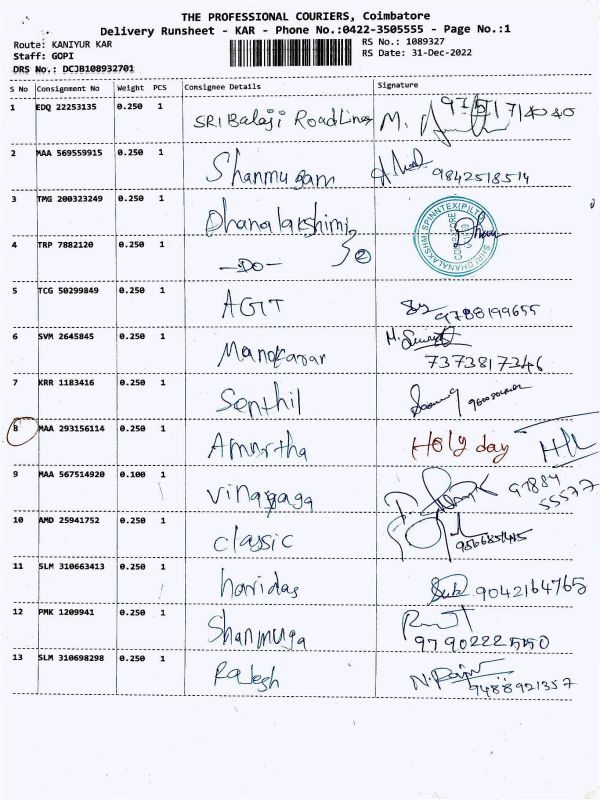 THE PROFESSIONAL COURIERS, Coimbatore
Delivery Runsheet - KAR - Phone No.:0422-3505555 - Page No.:1
Route: KANIYUR KAR
RS No.: 1089327
Staff: GOPI
RS Date: 31-Dec-2022
DRS No.: DCJB108932701
S No Consignment No Weight PCS Consignee Details Signature
1 EDQ 22253135 0.250 1 SRI Balaji Roadlines M.
2 MAA 569559915 0.250 1 Shanmugam 9842518514
3 TMG 200323249 0.250 1 Dhanalakshimi
4 TRP 7882120 0.250 1 -DO- 2
5 TCG 50299849 0.250 1 AGIT 9788199655
6 SVM 2645845 0.250 1 Manokaran 7373817346
7 KRR 1183416 0.250 1 Senthil
8 MAA 293156114 0.250 1 Amurtha Holy day
9 MAA 567514920 0.100 1 Vinayaga 97884 55577
10 AMD 25941752 0.250 1 classic
11 SLM 310663413 0.250 1 haridas 9042164765
12 PMK 1209941 0.250 1 Shanmuga 9790222550
13 SLM 310698298 0.250 1 Rajesh 9488921357